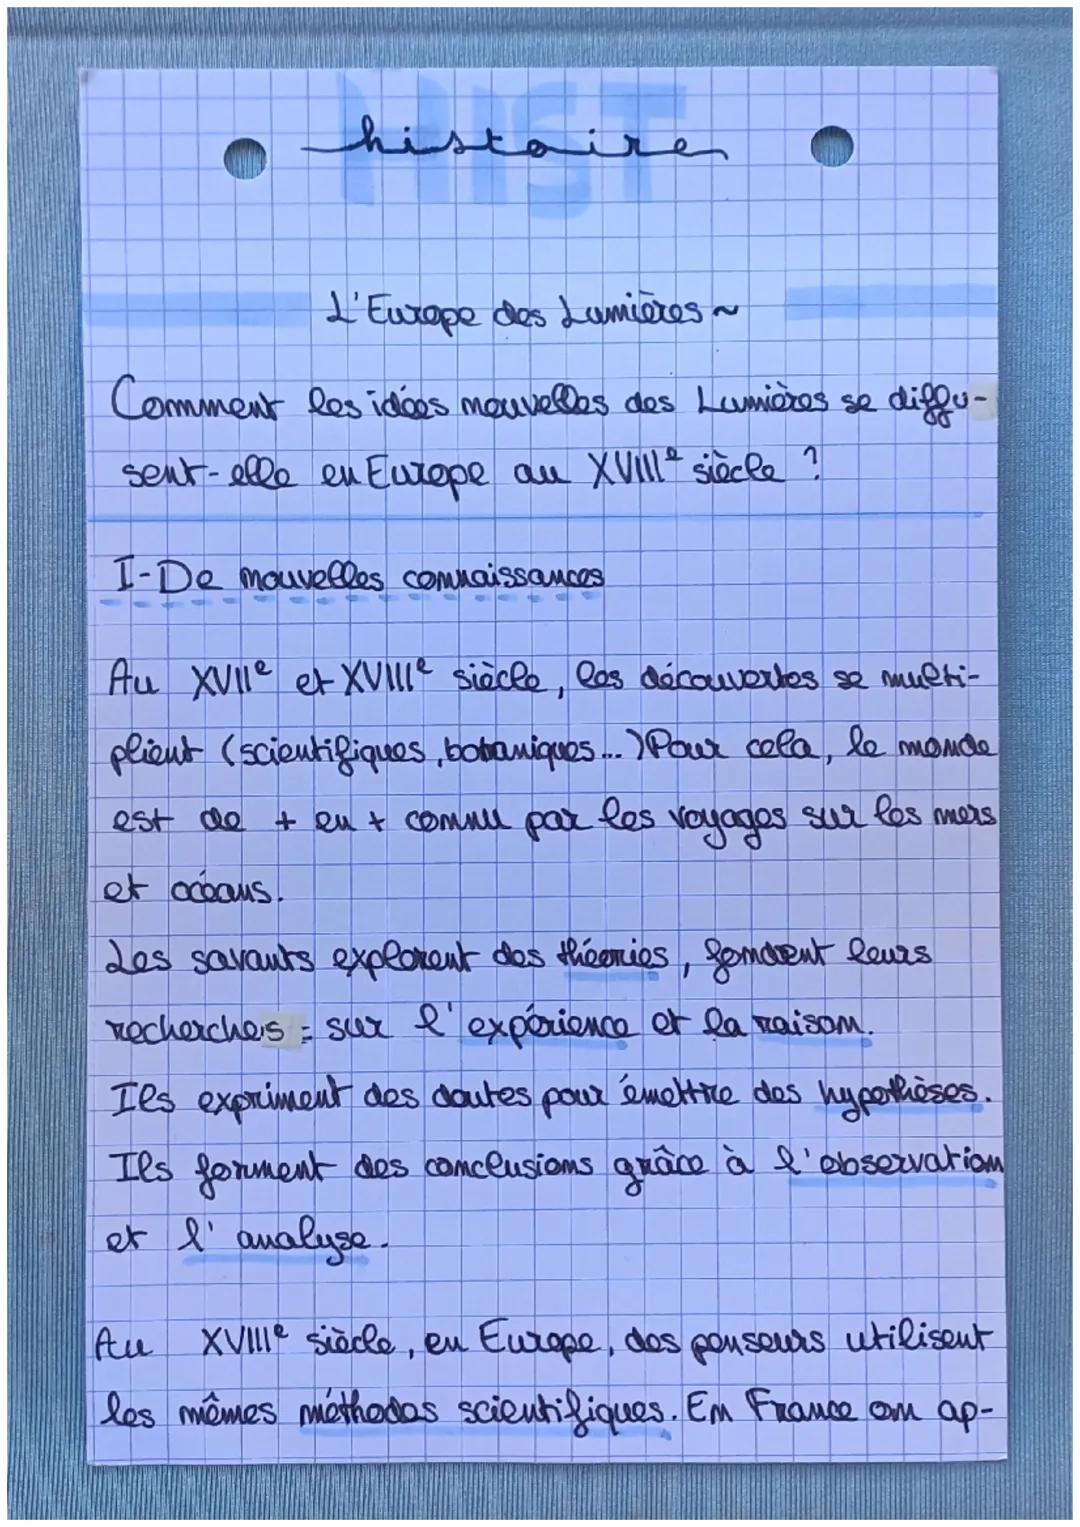 HIST
histoire
L'Europe des Lumières ~
Comment les idées nouvelles des Lumières se diffu-
sent-elle en Europe au XVIIIe siècle ?
I-De nouvelles connaissances
Au XVIIe et XVIIIe siècle, les découvertes se multi-
plient (scientifiques, botaniques...) Pour cela, le monde
est de + en + connu par les voyages sur les mers
et océans.
Les savants explorent des théories, fondent leurs
recherches = sur l'expérience et la raison.
Ils expriment des doutes pour émettre des hypothèses.
Ils forment des conclusions grâce à l'observation
et l'analyse.
Au XVIIIe siècle, en Europe, des penseurs utilisent
les mêmes méthodes scientifiques. En France on ap-